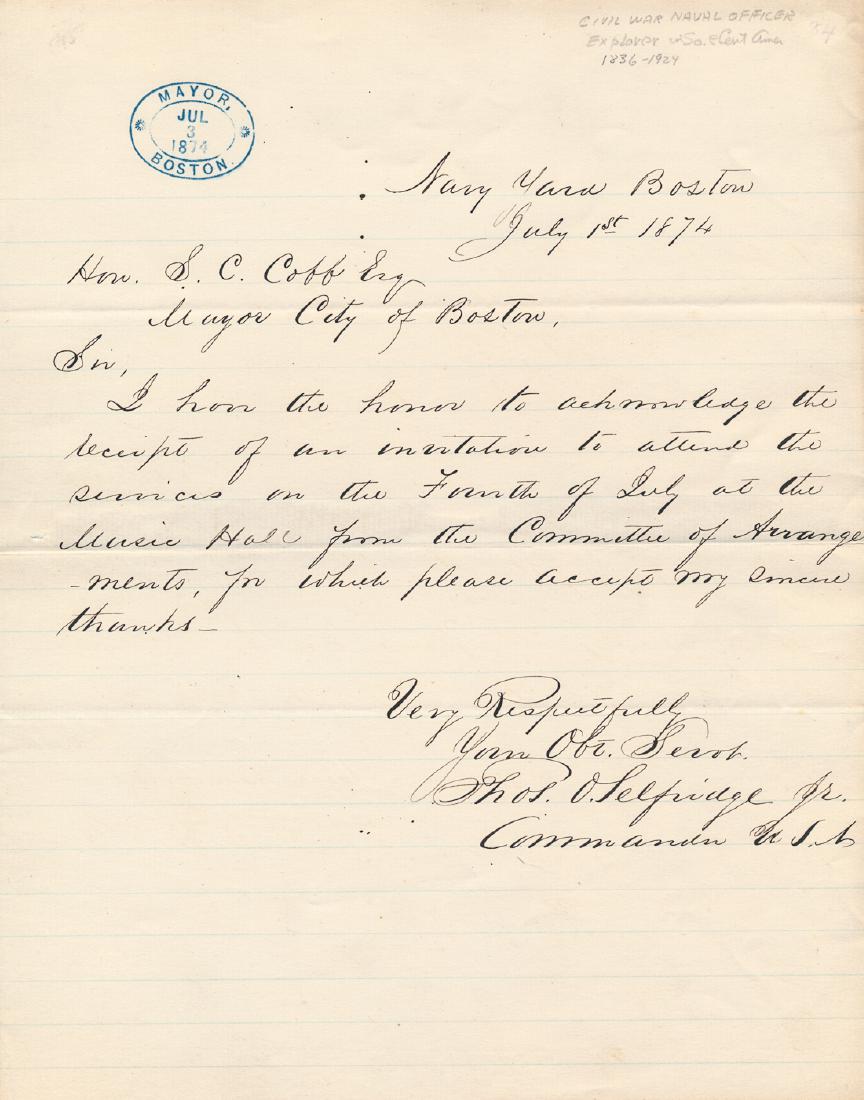 CIVIL WAR NAVAL OFFICER
Explorer in So. & Cent Amer
1836-1924
MAYOR,
JUL
3
1874
BOSTON.
Navy Yard Boston
July 1st 1874
Hon. S. C. Cobb Esq
Mayor City of Boston,
Sir,
I have the honor to acknowledge the
receipt of an invitation to attend the
services on the Fourth of July at the
Music Hall from the Committee of Arrange
-ments, for which please accept my sincere
thanks—
Very Respectfully
Your Obt. Servt.
Thos. O. Selfridge Jr.
Commander U.S.N